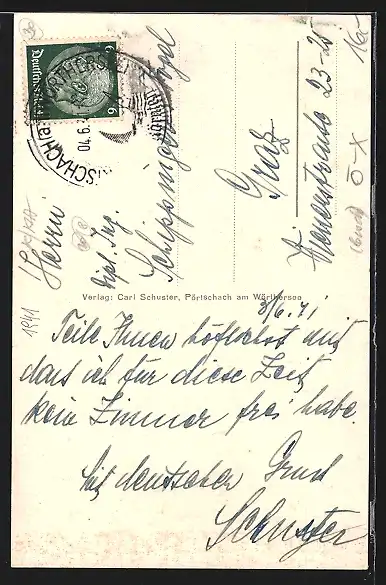 Herrn
Dipl. Ing.
Graz
Wienerstraße 23-25
Verlag: Carl Schuster, Pörtschach am Wörthersee
3/6. 41
Teile Ihnen höflichst mit,
dass ich für diese Zeit
kein Zimmer frei habe.
Mit deutschen Gruss
Schuster
Deutsches Reich
6
04.6.
1941